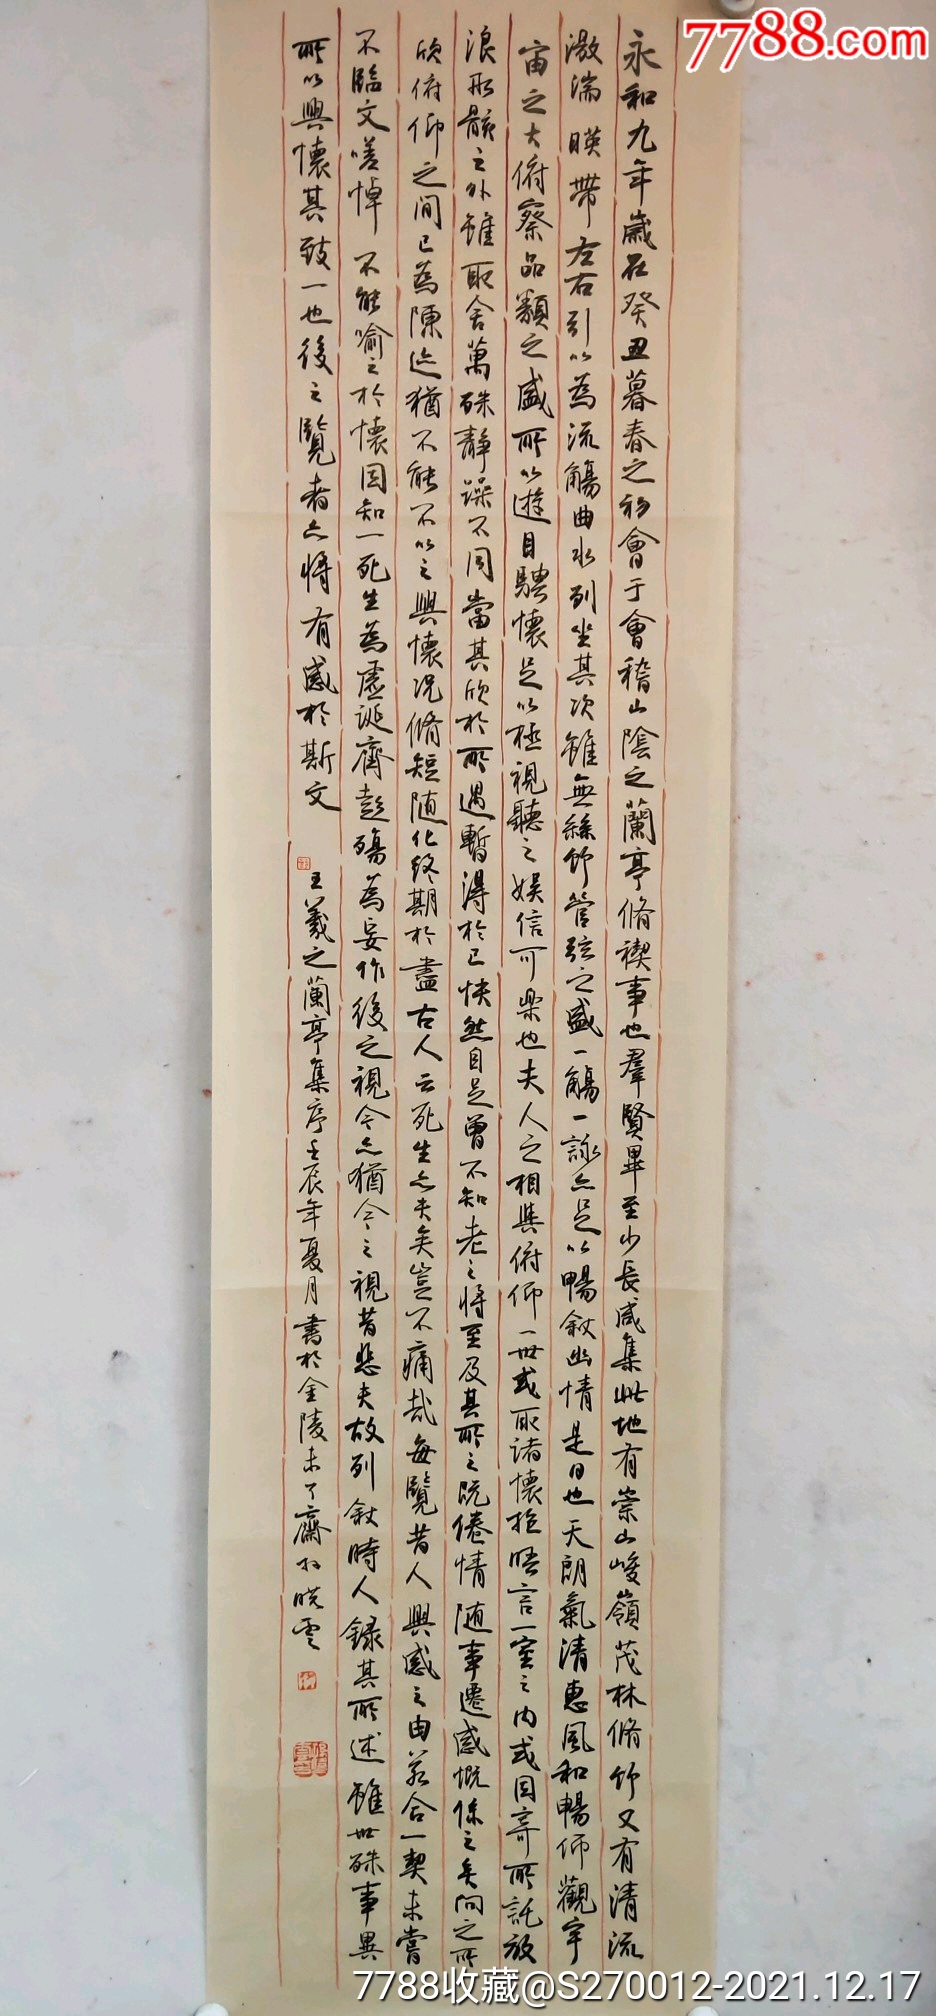 7788.com
永和九年歲在癸丑暮春之初會于會稽山陰之蘭亭脩禊事也羣賢畢至少長咸集此地有崇山峻嶺茂林脩竹又有清流
激湍暎帶左右引以為流觴曲水列坐其次雖無絲竹管弦之盛一觴一詠亦足以暢敘幽情是日也天朗氣清惠風和暢仰觀宇
宙之大俯察品類之盛所以遊目騁懷足以極視聽之娛信可樂也夫人之相與俯仰一世或取諸懷抱晤言一室之內或因寄所託放
浪形骸之外雖取舍萬殊靜躁不同當其欣於所遇暫得於己快然自足曾不知老之將至及其所之既倦情随事遷感慨係之矣向之所
欣俯仰之間已為陳迹猶不能不以之興懷況脩短随化終期於盡古人云死生亦大矣豈不痛哉每覽昔人興感之由若合一契未嘗
不臨文嗟悼不能喻之於懷固知一死生為虛誕齊彭殤為妄作後之視今亦猶今之視昔悲夫故列敘時人錄其所述雖世殊事異
所以興懷其致一也後之覽者亦將有感於斯文
王羲之蘭亭集序壬辰年夏月書於金陵未了齋孫曉雲
7788收藏@S270012-2021.12.17